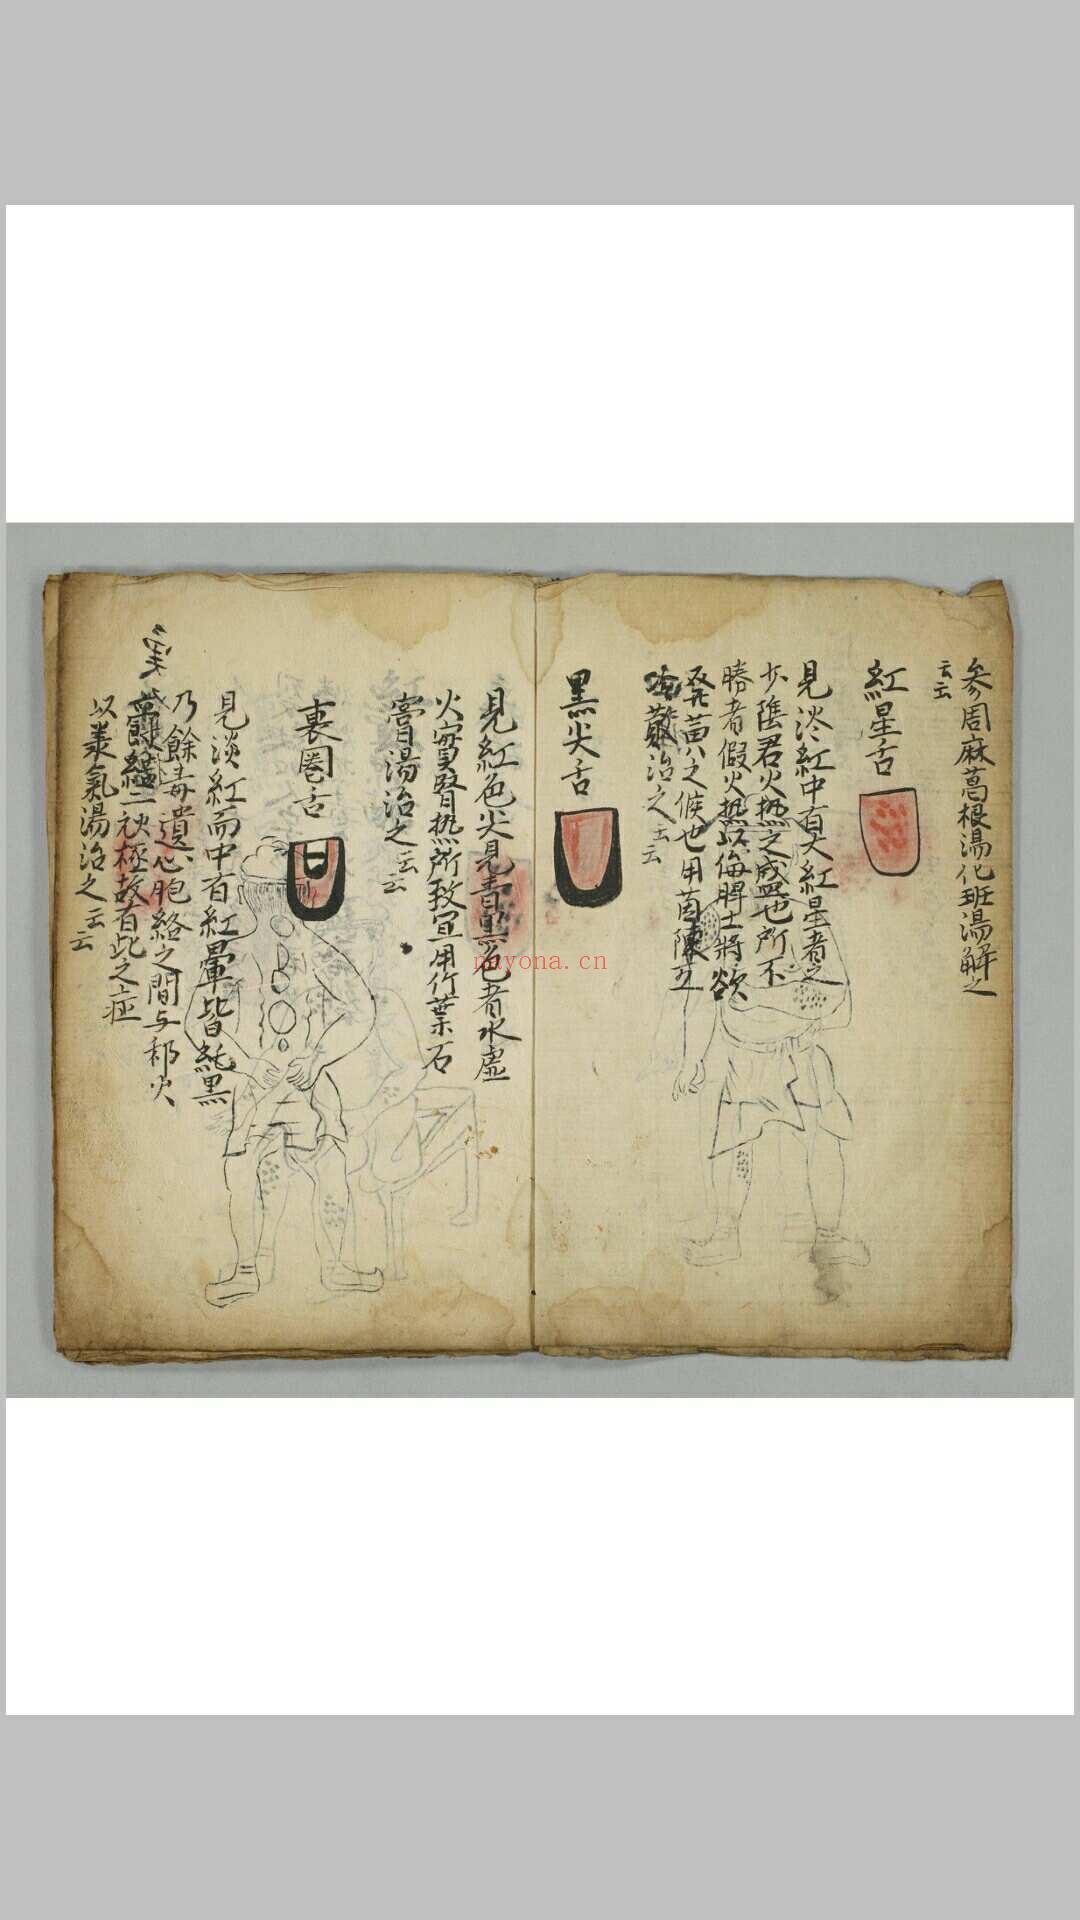 参周麻葛根湯化班湯解之
云云
紅星舌
見淡紅中有大紅星者之
少陰君火热之盛也所不
勝者假火热以侮脾土將欲
發黄之候也用茵陳五
苓散治之云云
黑尖舌
見紅色尖見青黑色者水虚
火實腎热所致宜用竹葉石
膏湯治之云云
裏圈舌
見淡紅而中有紅暈皆純黑
乃餘毒遺心胞絡之間与邪火
欝結二火極故有此之症
以承氣湯治之云云
nayona.cn